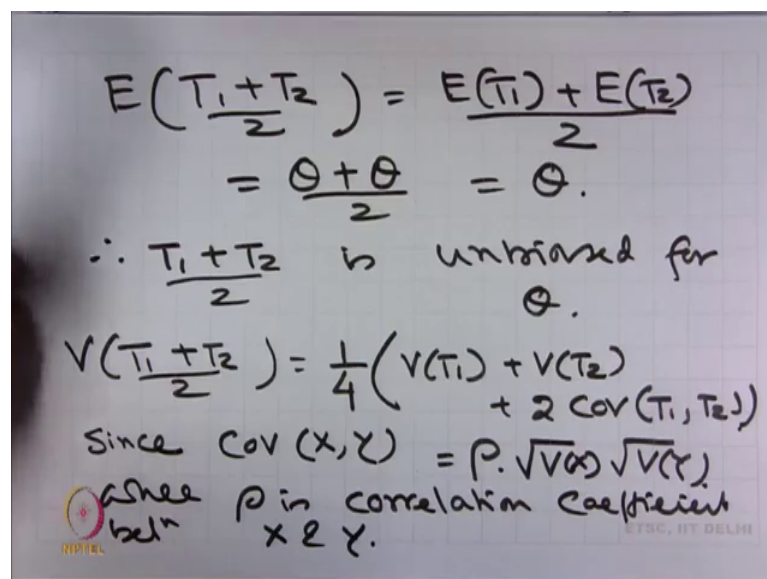 E(T₁ + T₂ / 2) = E(T₁) + E(T₂) / 2
= θ + θ / 2 = θ.
∴ T₁ + T₂ / 2 is unbiased for
θ.
V(T₁ + T₂ / 2) = 1/4 (V(T₁) + V(T₂)
+ 2 Cov(T₁, T₂))
Since Cov (X, Y) = ρ. √V(X) √V(Y)
ρ is correlation coefficient
betⁿ X & Y.
ETSC, IIT DELHI
NPTEL